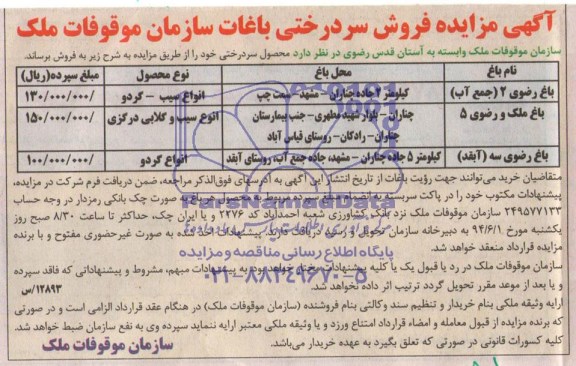 آگهی مزایده فروش سردرختی باغات سازمان موقوفات ملک
سازمان موقوفات ملک وابسته به آستان قدس رضوی در نظر دارد محصول سردرختی خود را از طریق مزایده به شرح زیر به فروش برساند.
نام باغ محل باغ نوع محصول مبلغ سپرده(ریال)
باغ رضوی ۲ (جمع آب) کیلومتر ۲ جاده چناران - مشهد- سمت چپ انواع سیب - گردو ۱۳۰/۰۰۰/۰۰۰/
باغ ملک و رضوی ۵ چناران- بلوار شهید مطهری- جنب بیمارستان انواع سیب و گلابی درگزی ۱۵۰/۰۰۰/۰۰۰/
چناران- رادکان- روستای قیاس آباد
باغ رضوی سه (آبقد) کیلومتر ۵ جاده چناران - مشهد، جاده جمع آب، روستای آبقد انواع گردو ۱۰۰/۰۰۰/۰۰۰/
متقاضیان خرید می‌توانند جهت رؤیت باغات از تاریخ انتشار این آگهی به آدرسهای فوق‌الذکر مراجعه، ضمن دریافت فرم شرکت در مزایده،
پیشنهادات مکتوب خود را در پاکت سربسته به انضمام مبلغ سپرده مربوط به هر باغ به صورت چک بانکی رمزدار در وجه حساب
۲۴۹۵۷۷۱۳۳ سازمان موقوفات ملک نزد بانک کشاورزی شعبه احمدآباد کد ۲۲۷۶ و یا ایران چک، حداکثر تا ساعت ۸/۳۰ صبح روز
یکشنبه مورخ ۹۴/۶/۱ به دبیرخانه سازمان تحویل و رسید دریافت دارند. پیشنهادات ارائه شده به صورت غیرحضوری مفتوح و با برنده
مزایده قرارداد منعقد خواهد شد.
پایگاه اطلاع رسانی مناقصه و مزایده
سازمان موقوفات ملک در رد یا قبول یک یا کلیه پیشنهادات مختار خواهد بود به پیشنهادات مبهم، مشروط و پیشنهاداتی که فاقد سپرده
۰۲۱-۸۸۳۴۹۶۷۰-۵
و یا بعد از موعد مقرر تحویل گردد ترتیب اثر داده نخواهد شد. ۱۲۸۹۳/س
ارایه وثیقه ملکی بنام خریدار و تنظیم سند وکالتی بنام فروشنده (سازمان موقوفات ملک) در هنگام عقد قرارداد الزامی است و در صورتی
که برنده مزایده از قبول معامله و امضاء قرارداد امتناع ورزد و یا وثیقه ملکی معتبر ارایه ننماید سپرده وی به نفع سازمان ضبط خواهد شد.
کلیه کسورات قانونی در صورتی که تعلق بگیرد به عهده خریدار می‌باشد. سازمان موقوفات ملک